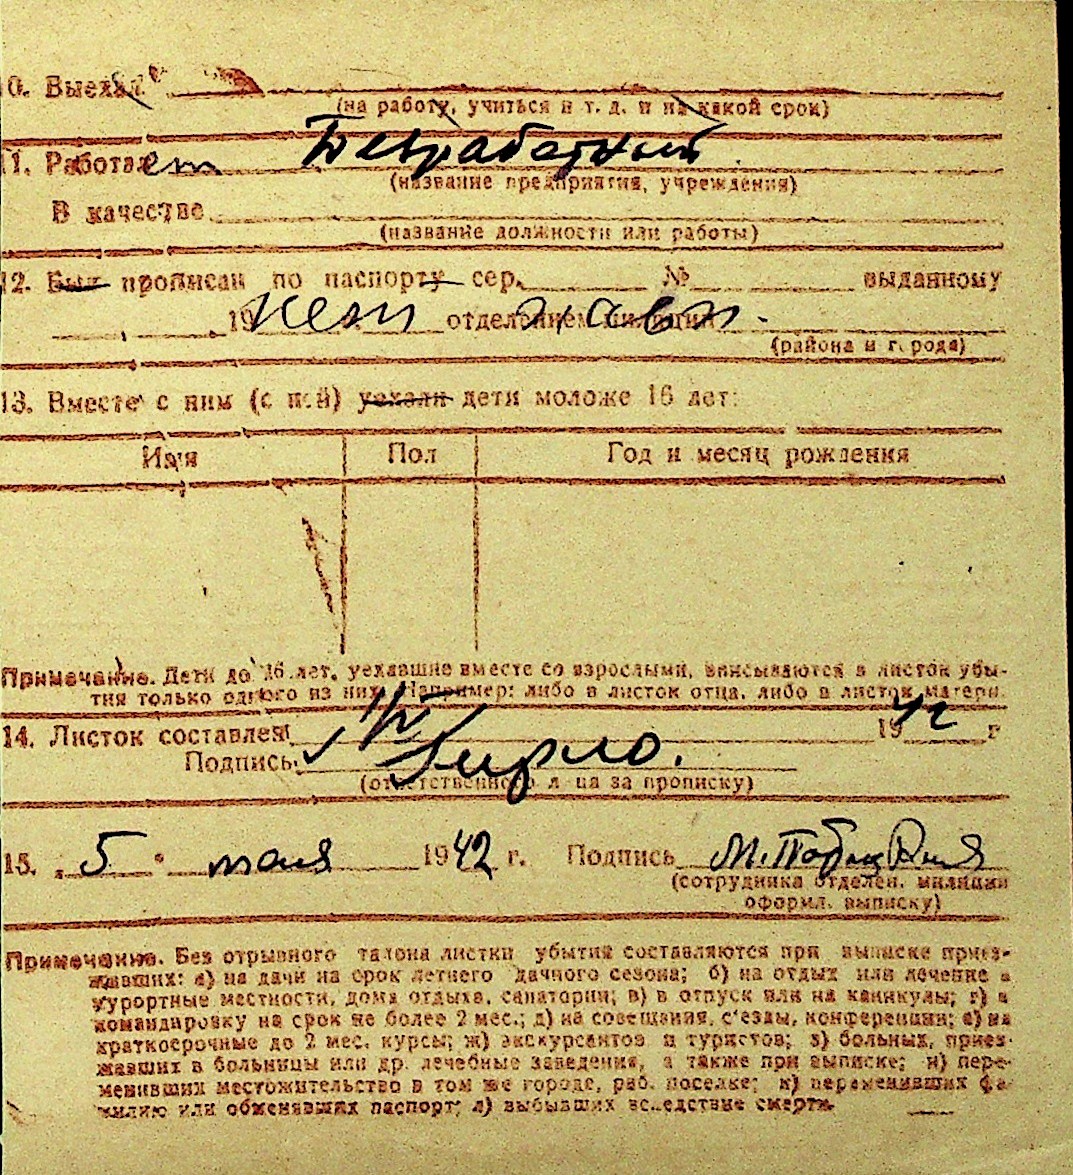 10. Выехал
(на работу, учиться и т. д. и на какой срок)
11. Работает Безработный
(название предприятия, учреждения)
В качестве
(название должности или работы)
12. Был прописан по паспорту сер. № выданному
19 отделением милиции
(района и города)
13. Вместе с ним (с ней) уехали дети моложе 16 лет:
Имя Пол Год и месяц рождения
Примечание. Дети до 16 лет, уехавшие вместе со взрослыми, вписываются в листок убы-
тия только одного из них. Например: либо в листок отца, либо в листок матери.
14. Листок составлен 1942 г
Подпись
(ответственного лица за прописку)
15. „5" мая 1942 г. Подпись
(сотрудника отделен. милиции
оформл. выписку)
Примечание. Без отрывного талона листки убытия составляются при выписке приез-
жавших: а) на дачи на срок летнего дачного сезона; б) на отдых или лечение в
курортные местности, дома отдыха, санатории; в) в отпуск или на каникулы; г) в
командировку на срок не более 2 мес.; д) на совещания, с'езды, конференции; е) на
краткосрочные до 2 мес. курсы; ж) экскурсантов и туристов; з) больных, приез-
жавших в больницы или др. лечебные заведения, а также при выписке; и) пере-
менивших местожительство в том же городе, раб. поселке; к) переменивших фа-
милию или обменявших паспорт; л) выбывших вследствие смерти.